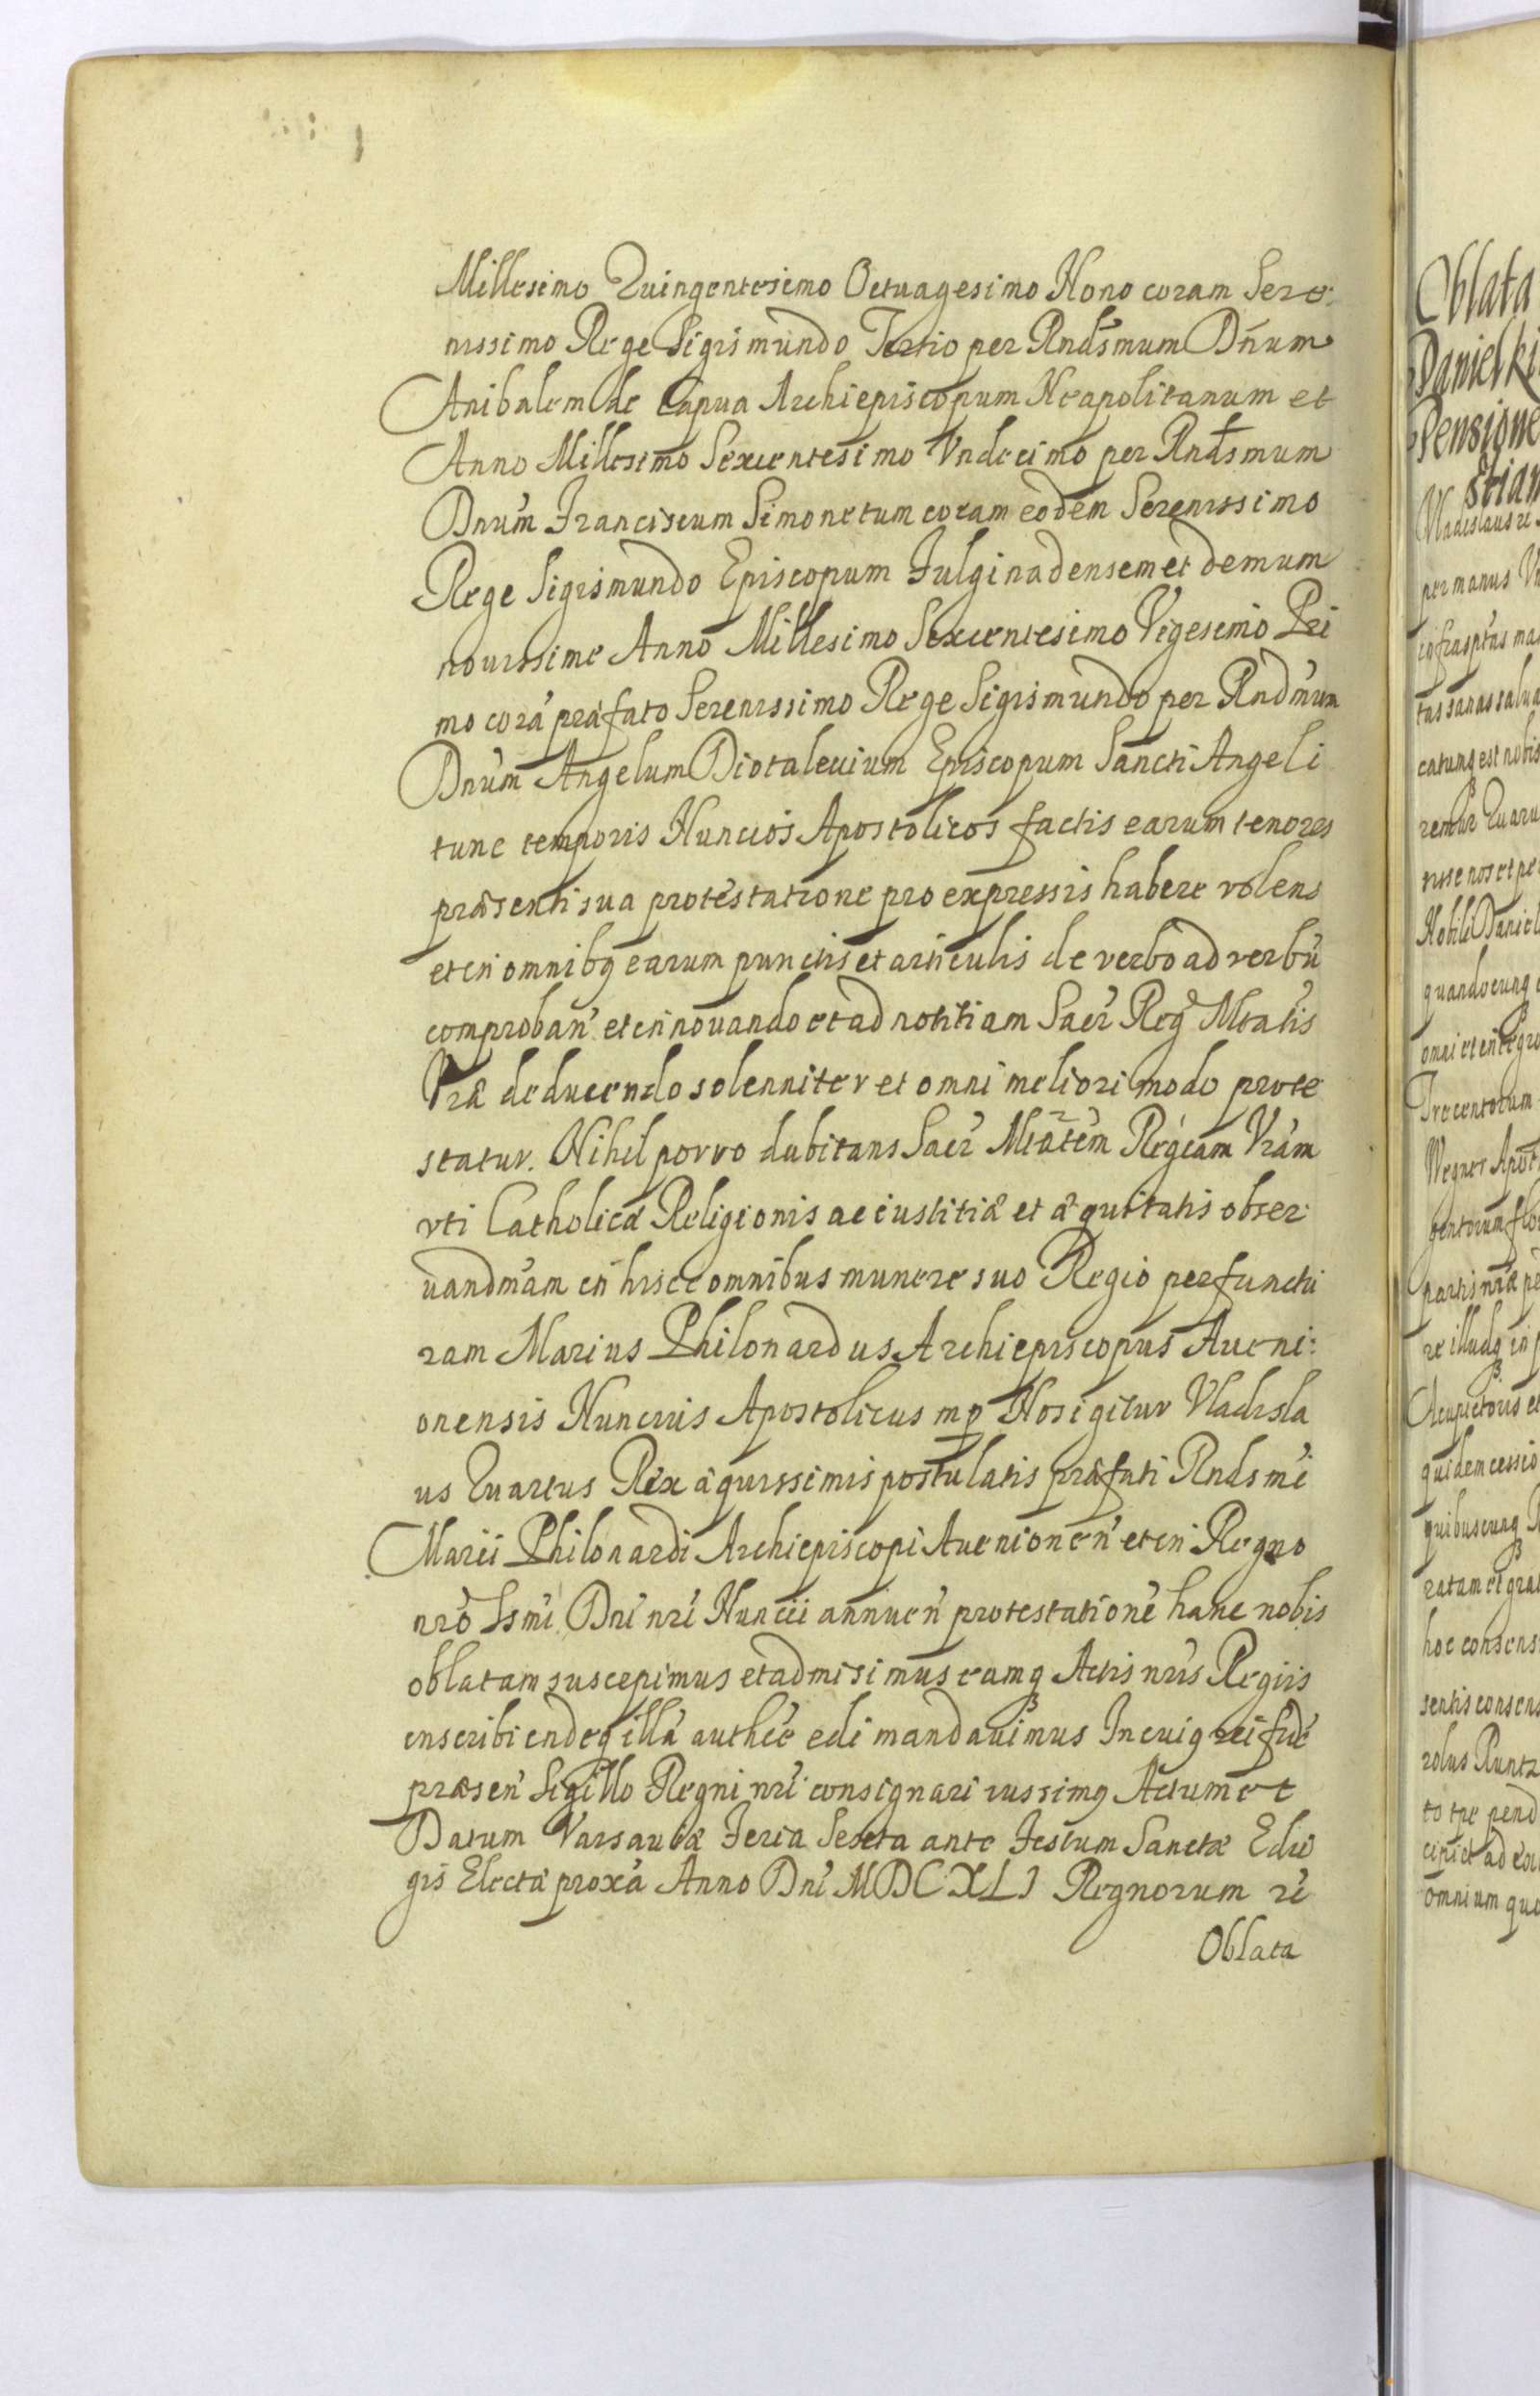 Millesimo Quingentesimo Octuagesimo Nono coram Sere:
nissimo Rege Sigismundo Tertio per Rndsmum Dnum
Anibalem de Capua Archiepiscopum Neapolitanum et
Anno Millesimo Sexcentesimo Vndecimo per Rndsmum
Dnum Franciscum Simonetum coram eodem Serenissimo
Rege Sigismundo Episcopum Fulginadensem et demum
nouissime Anno Millesimo Sexcentesimo Vigesimo Pri
mo corā præfato Serenissimo Rege Sigismundo per Rndmum
Dnum Angelum Diotaleuium Episcopum Sancti Angeli
tunc temporis Nuncios Apostolicos factis earum tenores
præsenti sua protestatione pro expressis habere volens
et in omnibq earum punctis et articulis de verbo ad verbū
comproban et innouando et ad notitiam Sacr Reg Mtatis
Vræ deducendo solenniter et omni meliori modo prote
statur. Nihil porro dubitans Sacr Mtatem Regiam Vram
vti Catholicæ Religionis ac iustitiæ et æquitatis obser
uandmam in hisce omnibus munere suo Regio perfunctu
ram Marius Philonardus Archiepiscopus Aueni:
onensis Nuncius Apostolicus mp Nos igitur Vladisla
us Quartus Rex æquissimis postulatis præfati Rndsmi
Marii Philonardi Archiepiscopi Auenionen et in Regno
nro Ssmi Dni nri Nuncii annuen protestationē hanc nobis
oblatam suscepimus et admisimus eamq Actis nris Regiis
inscribi indeq illā authce edi mandauimus In cuiq rei fidē
præsen Sigillo Regni nri consignari iussimq Actum et
Datum Varsauiæ Feria Sexta ante Festum Sanctæ Edui
gis Electæ proxa Anno Dni MDCXLI Regnorum ri
Oblata
Oblata
Danielki
Pensione
etiam
Vladislaus
per manus
catumq est nobis
quandocunq
Trecentorum
Wegner Apot
quibuscunq
ratam et gra
hoc consens
sentis consens
omnium quo